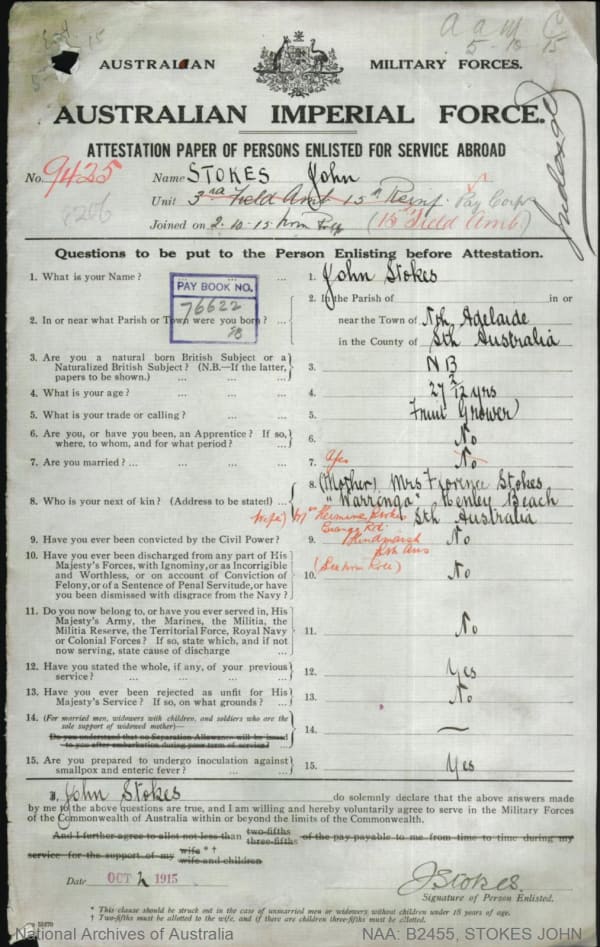 A a m C
5-10 15
AUSTRALIAN MILITARY FORCES.
AUSTRALIAN IMPERIAL FORCE.
ATTESTATION PAPER OF PERSONS ENLISTED FOR SERVICE ABROAD
No. 9425 Name STOKES John
Unit 3rd Field Amb 15th Reinf. Pay Corps
Joined on 2-10-15 (13th Field Amb.)
Indexed
Questions to be put to the Person Enlisting before Attestation.
1. What is your Name? ... ... 1. John Stokes
PAY BOOK NO.
76622
2. In or near what Parish or Town were you born? ... 2. In the Parish of in or
near the Town of Nth Adelaide
in the County of Sth Australia
3. Are you a natural born British Subject or a
Naturalized British Subject? (N.B.—If the latter,
papers to be shown.) ... ... ... 3. N B
4. What is your age? ... ... ... 4. 27 2/12 yrs
5. What is your trade or calling? ... ... 5. Fruit Grower
6. Are you, or have you been, an Apprentice? If so,
where, to whom, and for what period? ... 6. No
7. Are you married? ... ... ... 7. Yes No
8. Who is your next of kin? (Address to be stated) ... 8. (Mother) Mrs Florence Stokes
"Warringa" Henley Beach
Sth Australia
(Wife) Mrs Hermine Stokes
Grange Rd.
Hindmarsh
Sth Aus
(See nom Roll)
9. Have you ever been convicted by the Civil Power? 9. No
10. Have you ever been discharged from any part of His
Majesty's Forces, with Ignominy, or as Incorrigible
and Worthless, or on account of Conviction of
Felony, or of a Sentence of Penal Servitude, or have
you been dismissed with disgrace from the Navy? 10. No
11. Do you now belong to, or have you ever served in, His
Majesty's Army, the Marines, the Militia, the
Militia Reserve, the Territorial Force, Royal Navy
or Colonial Forces? If so, state which, and if not
now serving, state cause of discharge ... 11. No
12. Have you stated the whole, if any, of your previous
service? ... ... ... ... 12. Yes
13. Have you ever been rejected as unfit for His
Majesty's Service? If so, on what grounds? ... 13. No
14. (For married men, widowers with children, and soldiers who are the
sole support of widowed mother)—
Do you understand that no Separation Allowance will be issued
to you after embarkation during your term of service? ... 14. —
15. Are you prepared to undergo inoculation against
smallpox and enteric fever? ... ... 15. Yes
I, John Stokes do solemnly declare that the above answers made
by me to the above questions are true, and I am willing and hereby voluntarily agree to serve in the Military Forces
of the Commonwealth of Australia within or beyond the limits of the Commonwealth.
And I further agree to allot not less than two-fifths three-fifths of the pay payable to me from time to time during my
service for the support of my wife * † wife and children
Date OCT 2 1915
J Stokes.
Signature of Person Enlisted.
* This clause should be struck out in the case of unmarried men or widowers without children under 18 years of age.
† Two-fifths must be allotted to the wife, and if there are children three-fifths must be allotted.
National Archives of Australia NAA: B2455, STOKES JOHN